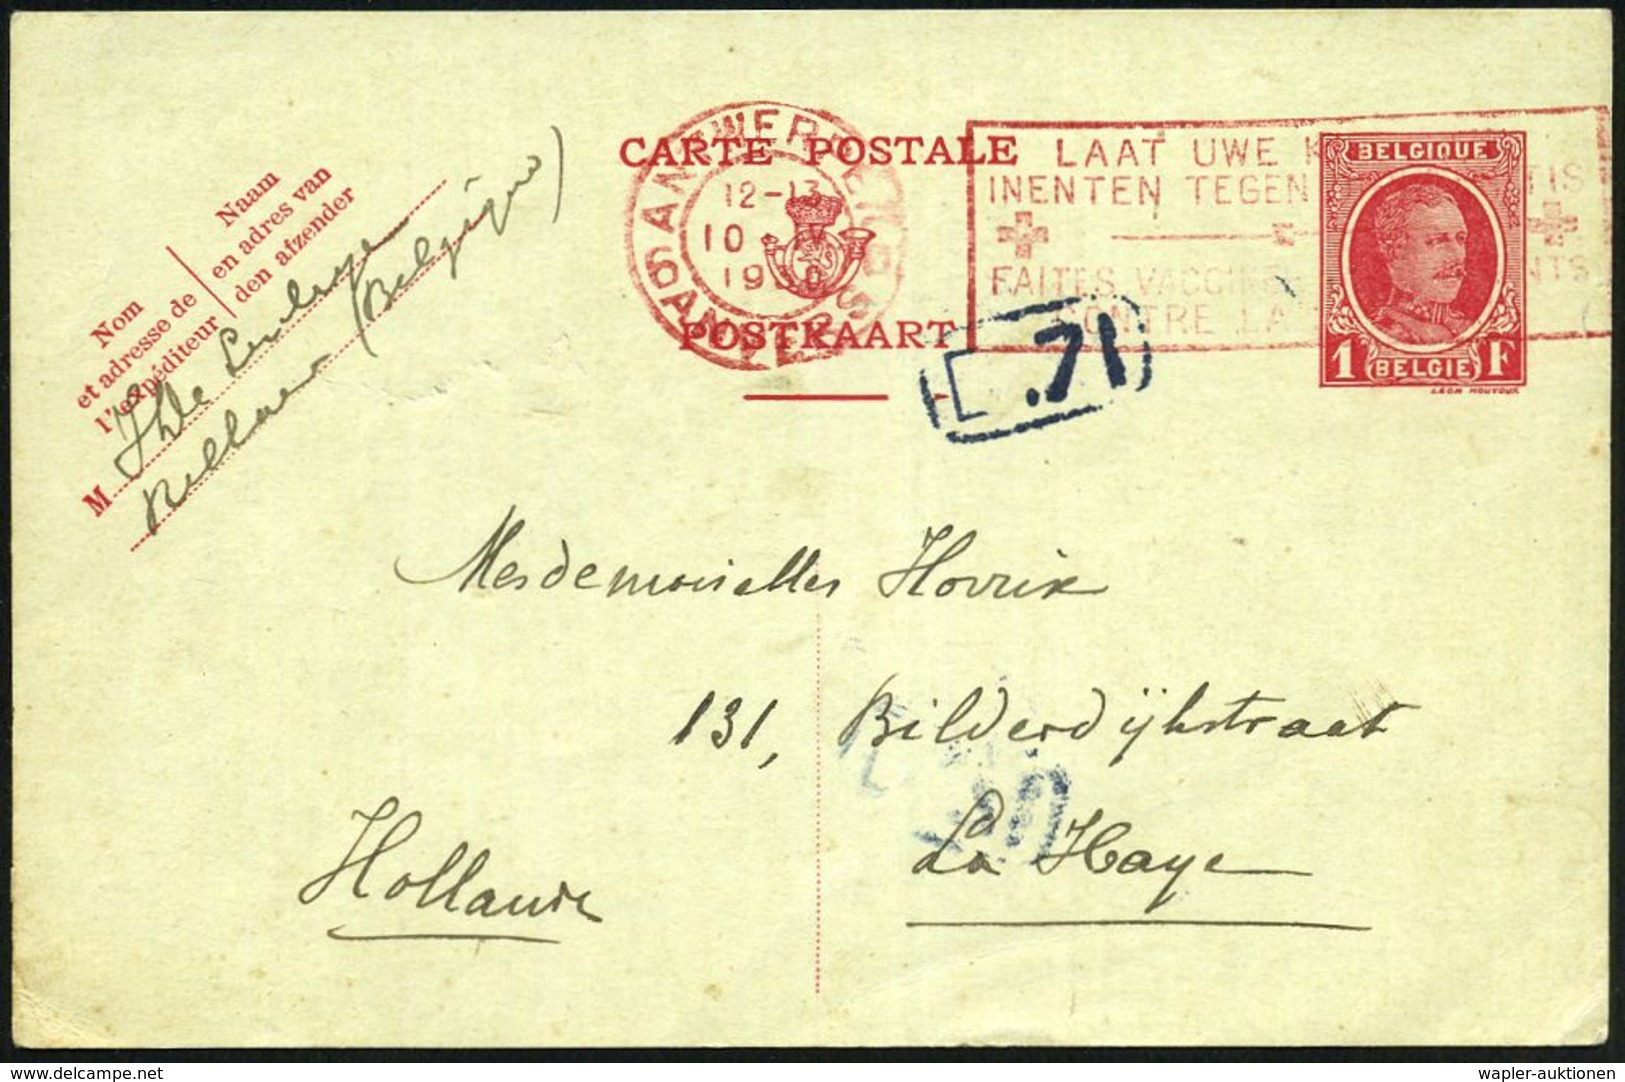 CARTE POSTALE
POSTKAART
Nom
et adresse de
l'expéditeur
Naam
en adres van
den afzender
M
(Belgique)
6 ANTWERPEN
12-13
10
19
ANVERS
LAAT UWE K
INENTEN TEGEN TIS
FAITES VACCINER NTS
CONTRE LA
BELGIQUE
1 F
BELGIE
LEON HOUYOUX
.71
Mesdemoiselles Hovrix
131, Bilderdijkstraat
La Haye
Hollande
wapler-auktionen